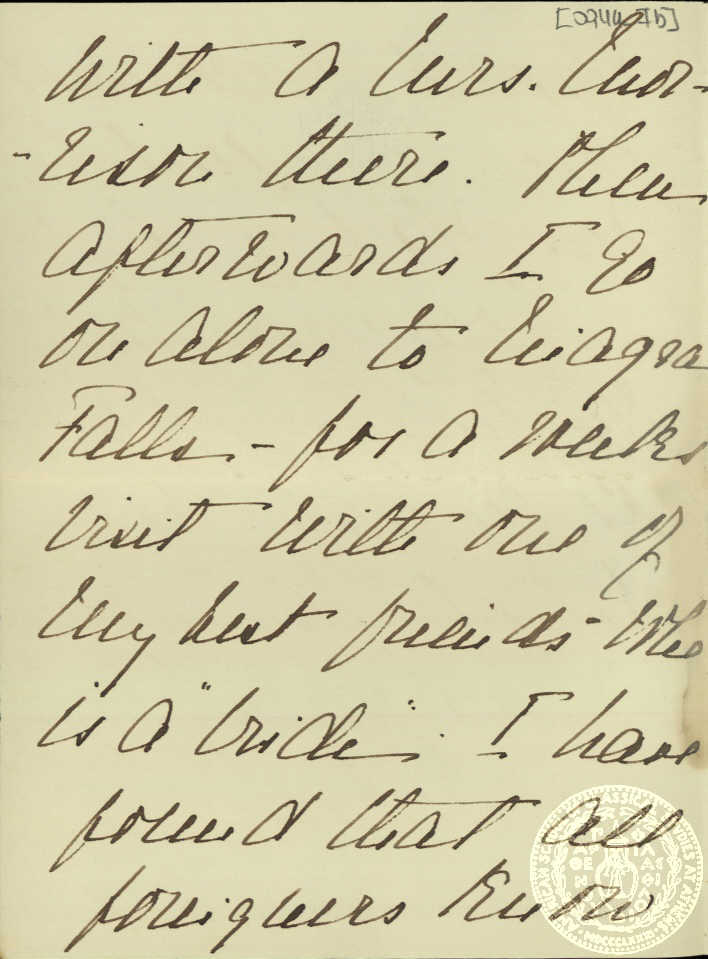 [0944 7b]
with a Mrs. Mor-
-rison there. Then
afterwards I go
on alone to Niagra
Falls - for a weeks
visit with one of
my best friends - who
is a "bride". I have
found that all
foreigners know